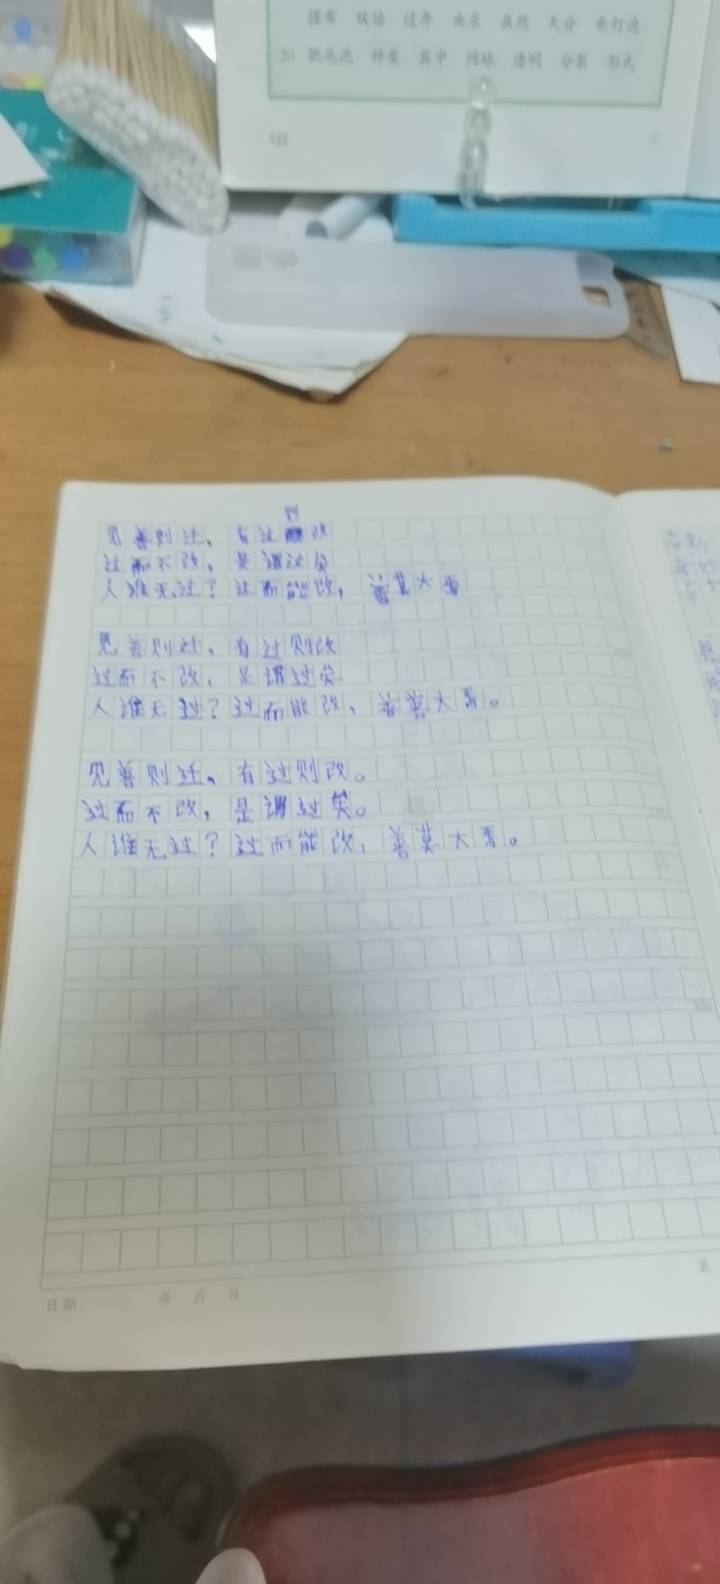 摆布 双手 过年 央求 虽然 天分 电灯泡
20 肥皂泡 种类 其中 网球 透明 分裂 形式
133
则
见善则迁、有过改
过而不改，是谓过矣
人谁无过？过而能改，善莫大焉
见善则迁，有过则改
过而不改，是谓过矣
人谁无过？过而能改，善莫大焉。
见善则迁、有过则改。
过而不改，是谓过矣。
人谁无过？过而能改，善莫大焉。
300
第
日期： 年 月 日